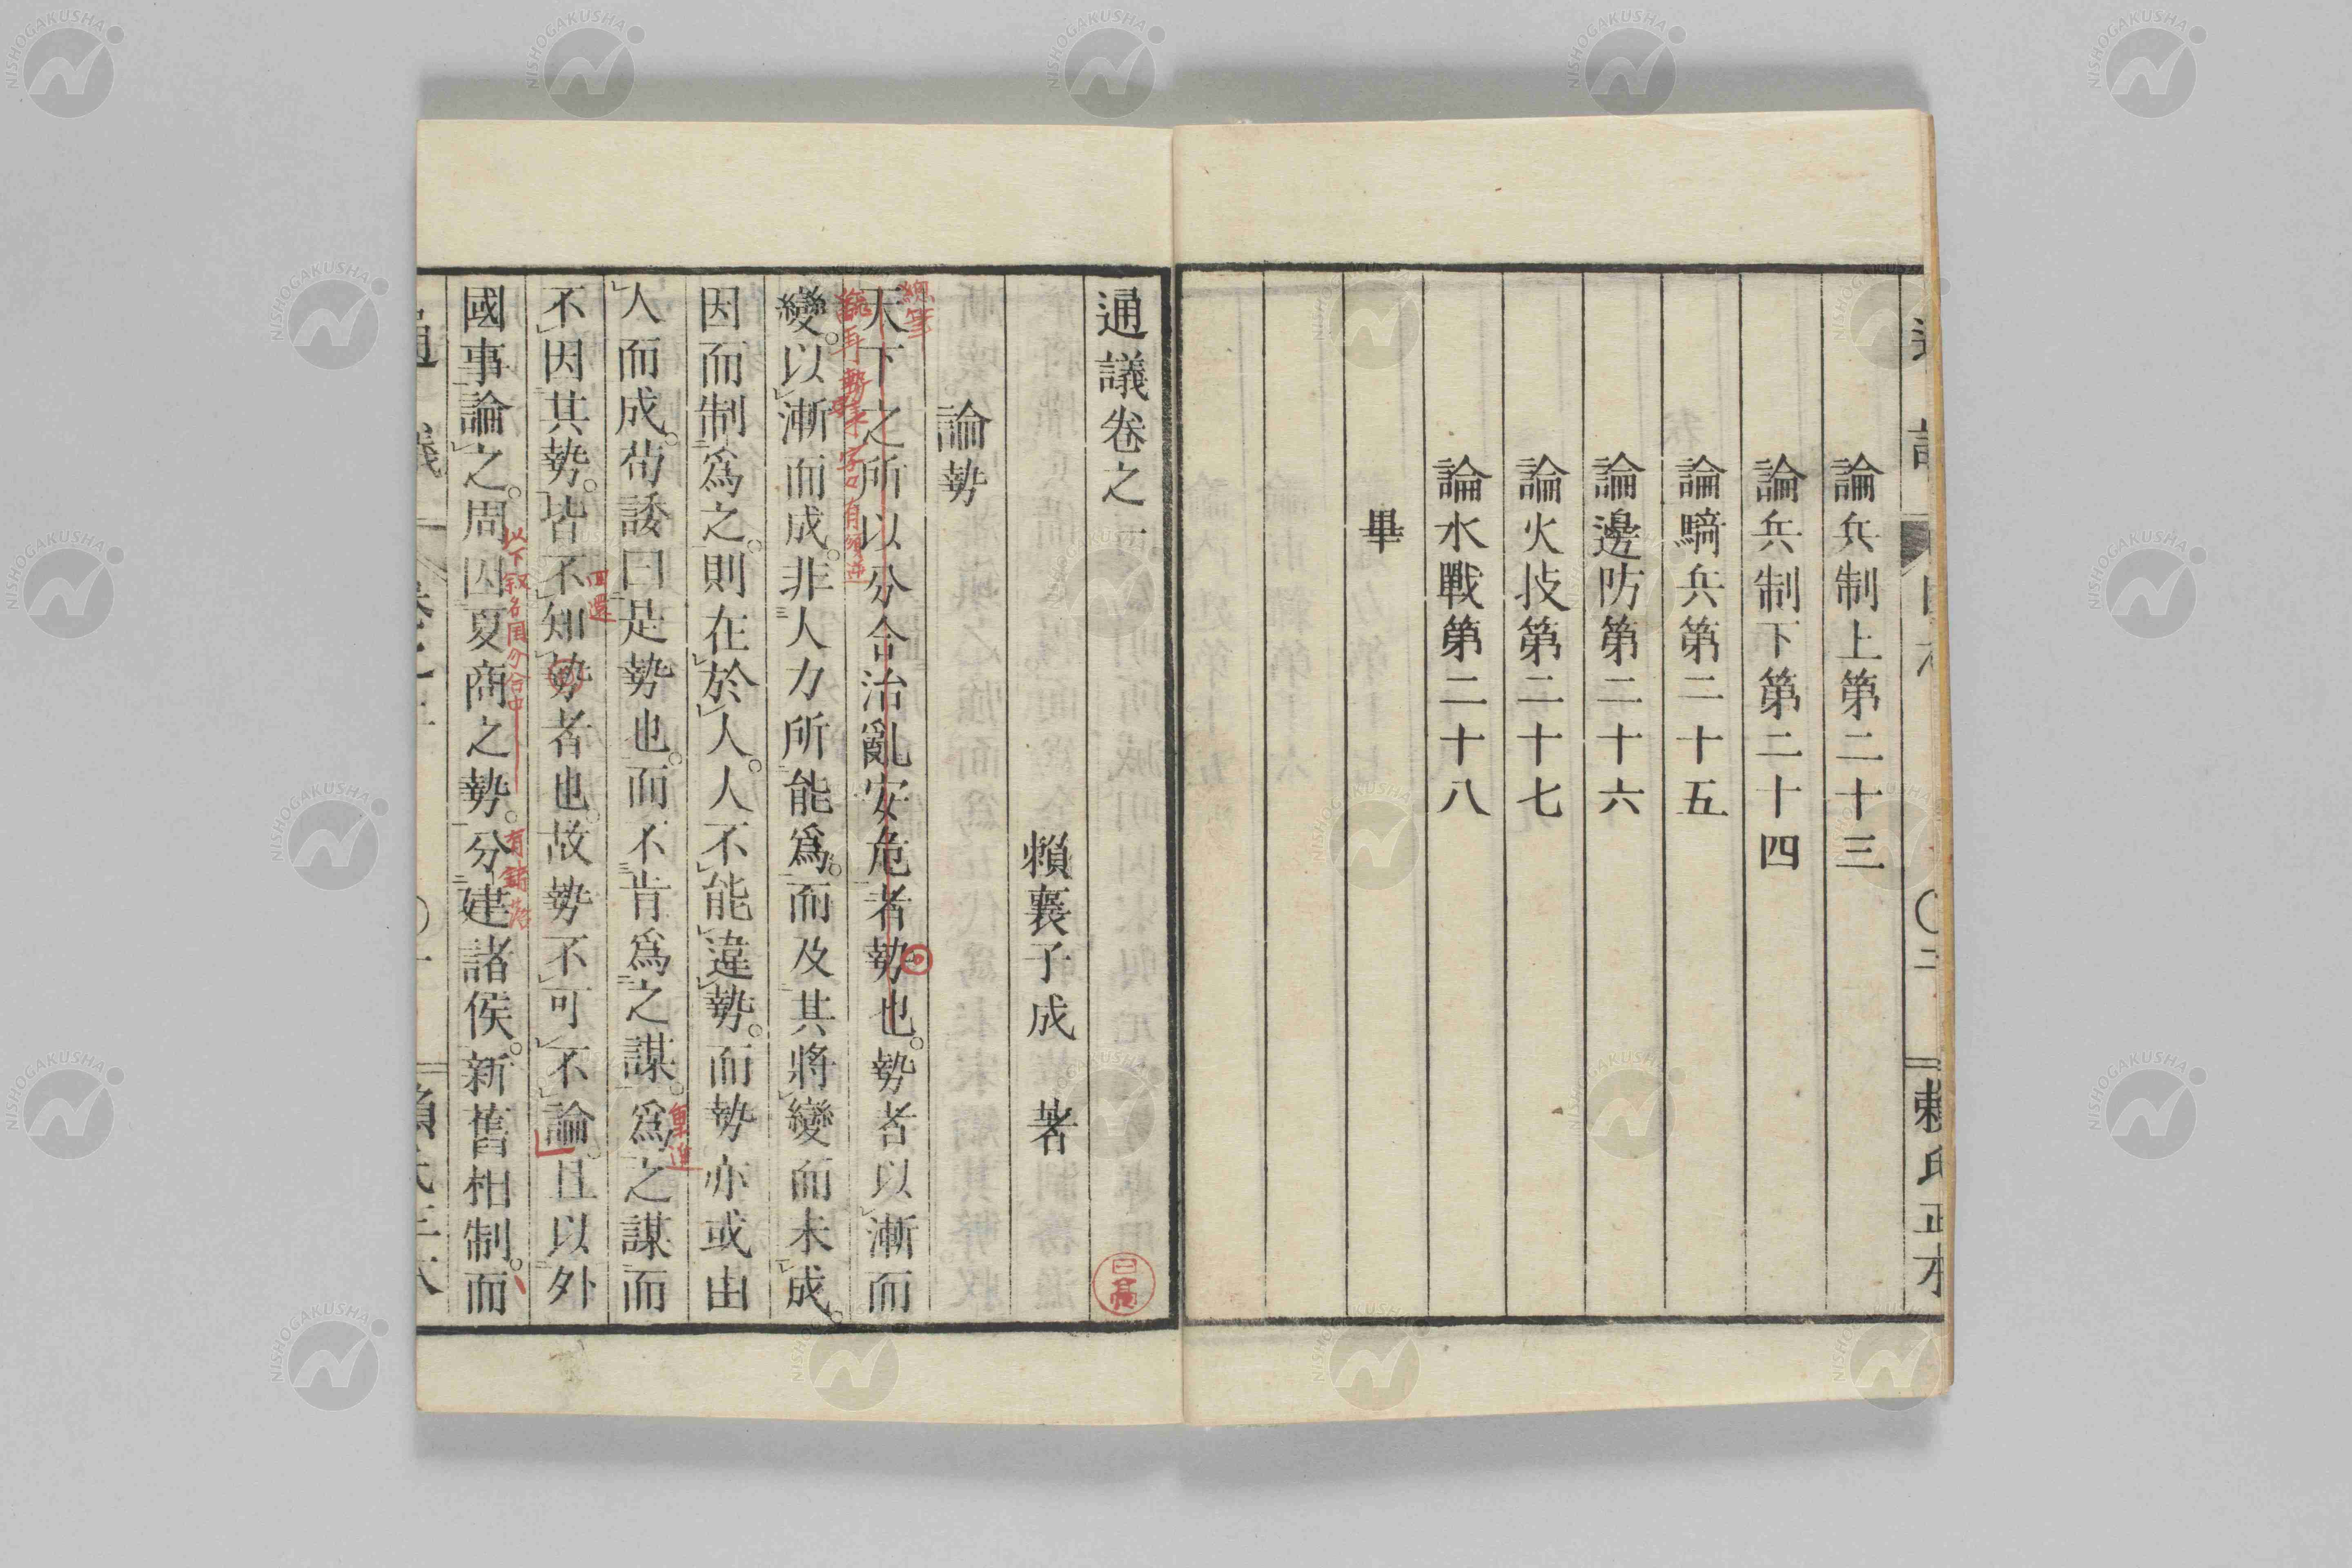 論兵制上第二十三
論兵制下第二十四
論騎兵第二十五
論邊防第二十六
論火技第二十七
論水戰第二十八
畢
通議卷之一
賴襄子成 著
論勢
天下之所以分合治亂安危者勢也。勢者以漸而
變。以漸而成。非人力所能爲。而及其將變而未成。
因而制爲之。則在於人。人不能違勢。而勢亦或由
人而成。苟諉曰是勢也。而不肯爲之謀。爲之謀而
不因其勢。皆不知勢者也。故勢不可不論。且以外
國事論之。周因夏商之勢。分建諸侯。新舊相制。而
〇二
賴氏正本
NISHOGAKUSHA